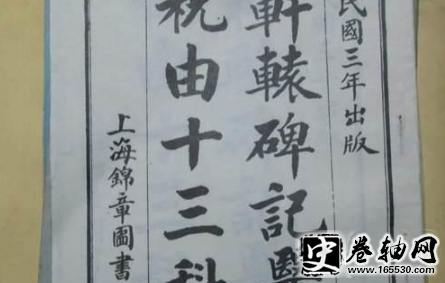 民國三年出版
軒轅碑記醫
祝由十三科
上海錦章圖書
卷轴网
www.165530.com